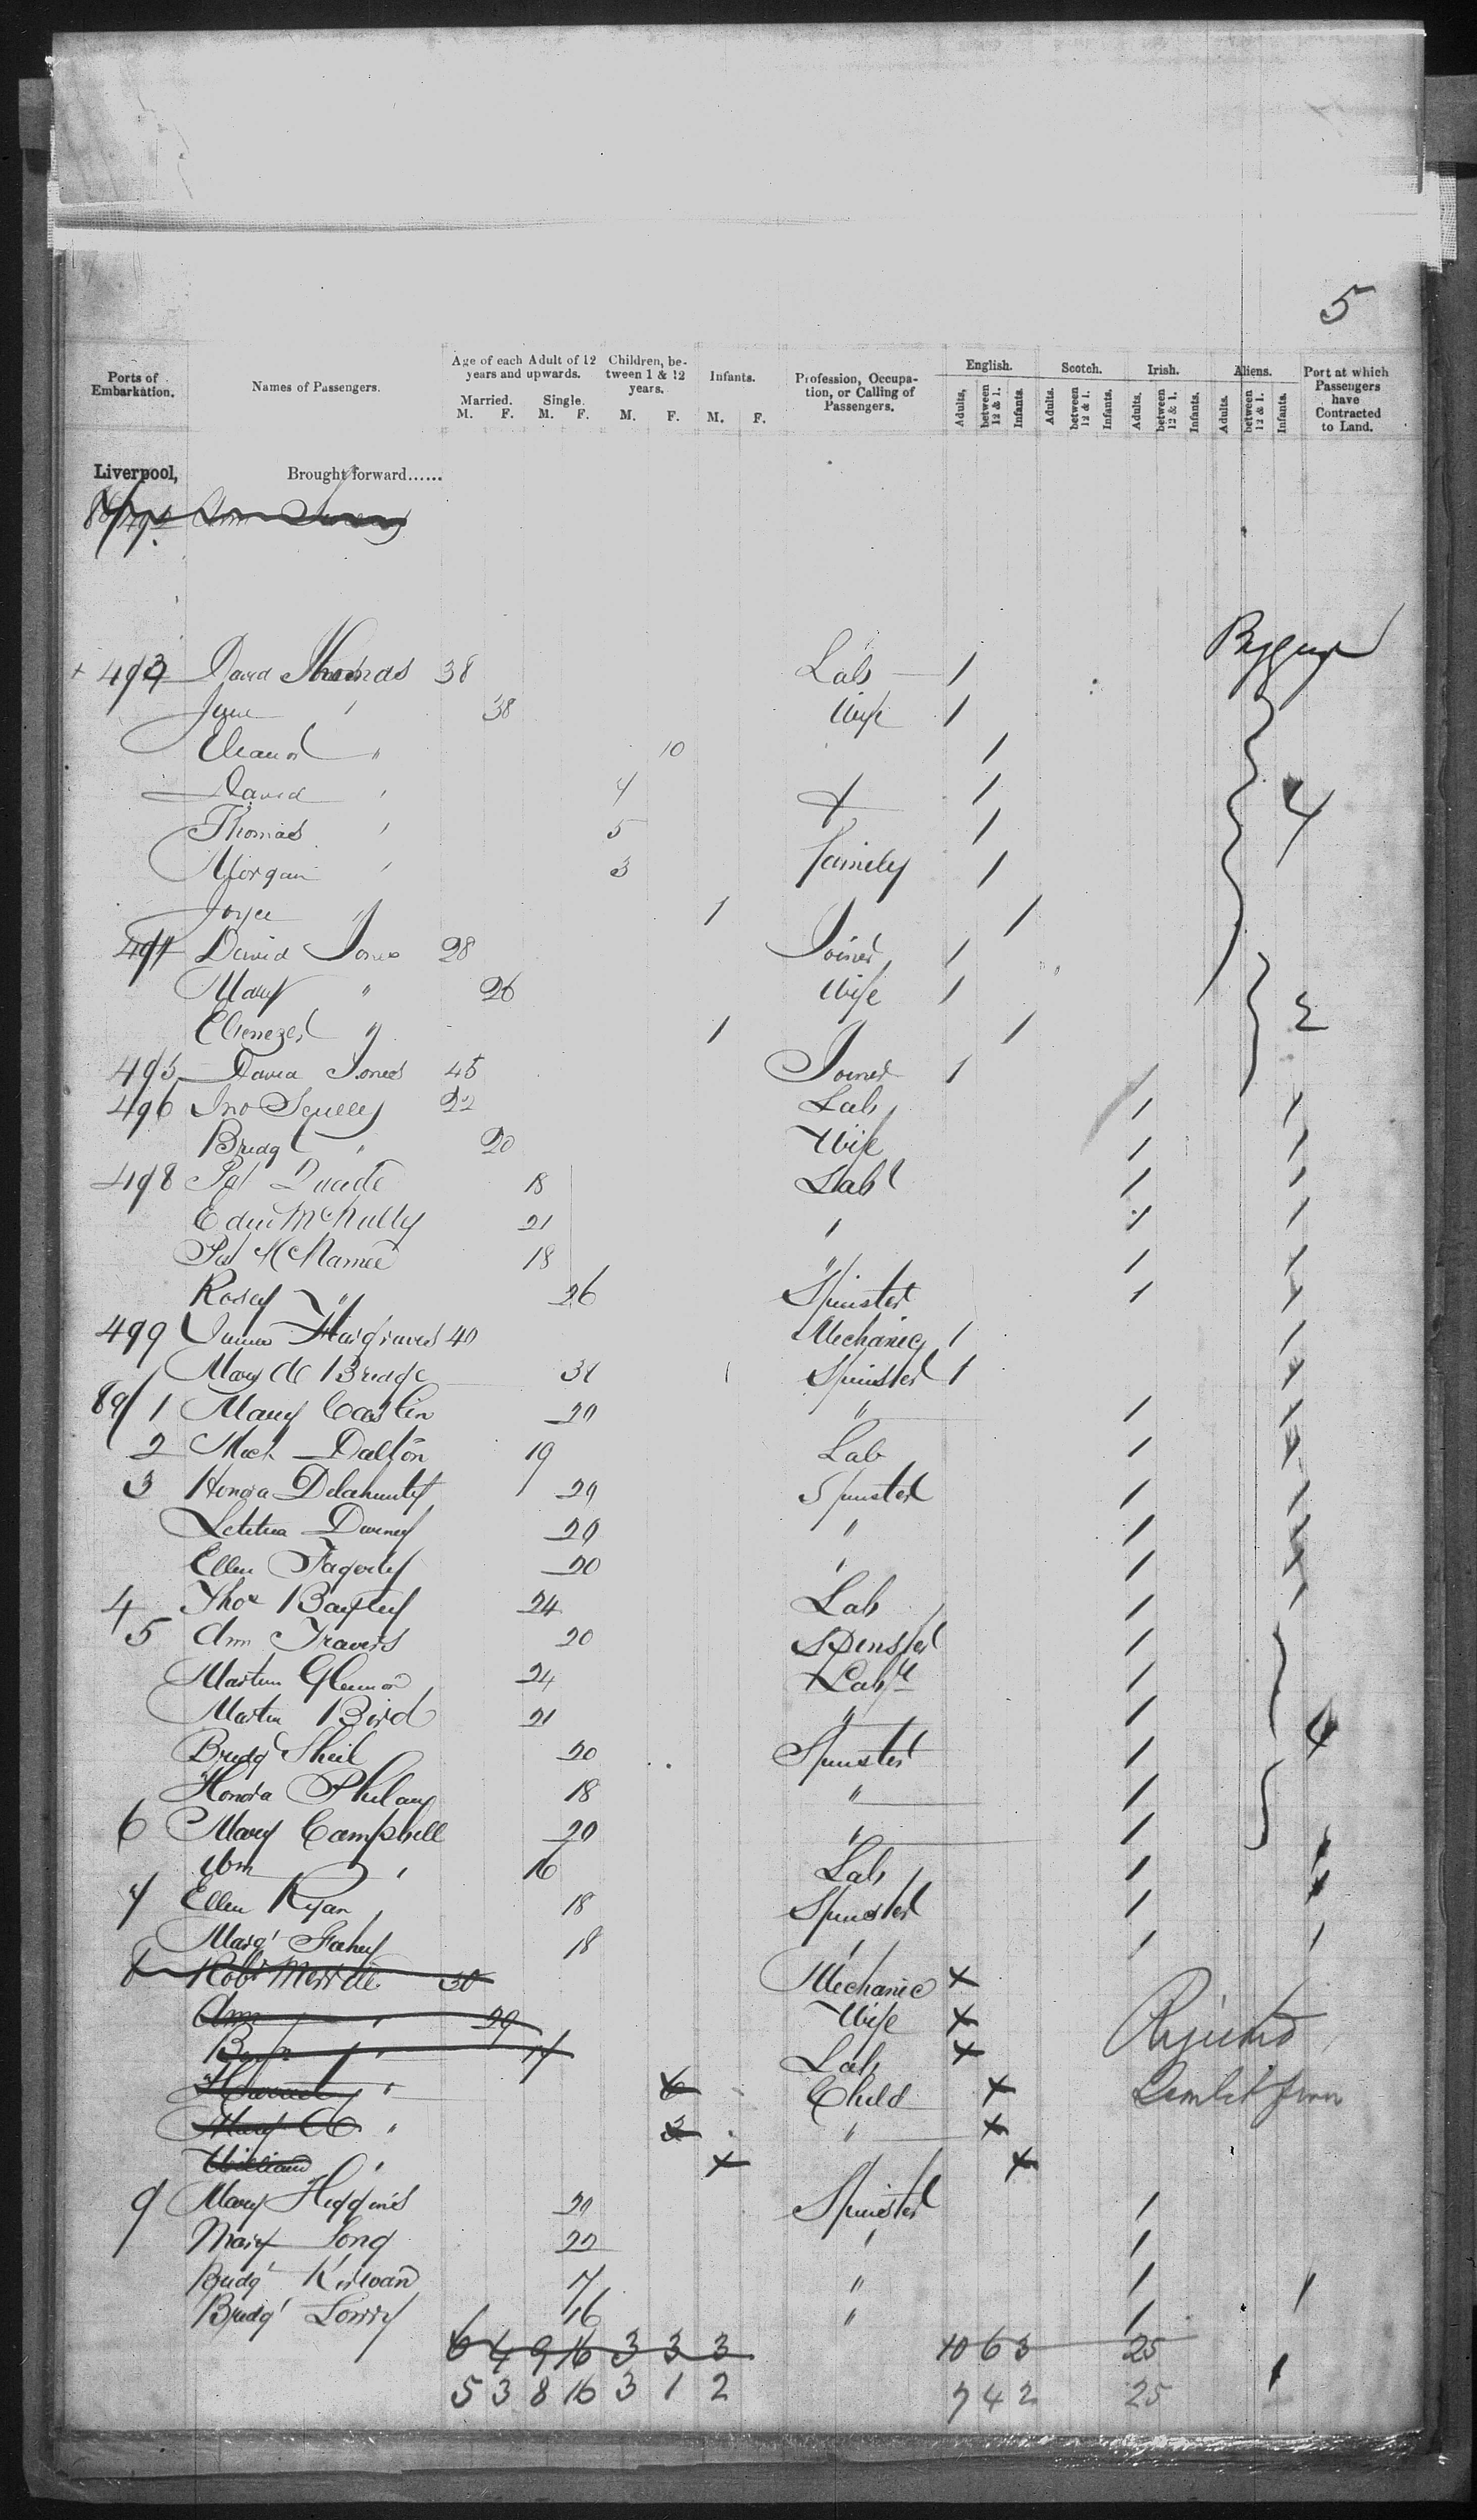 5
Ports of Embarkation. Names of Passengers. Age of each Adult of 12 years and upwards. Married. M. F. Single. M. F. Children, between 1 & 12 years. M. F. Infants. M. F. Profession, Occupation, or Calling of Passengers. English. Adults, between 12 & 1. Infants. Scotch. Adults. between 12 & 1. Infants. Irish. Adults. between 12 & 1. Infants. Aliens. Adults. between 12 & 1. Infants. Port at which Passengers have Contracted to Land.
Liverpool, Brought forward......
Ann
493 David Thomas 38 Lab 1
Jane " 38 Wife 1
Eleanor " 10 1
David " 4 1 4
Thomas " 5 1
Morgan " 3 family 1
Joyce " 1 1
494 David Jones 28 Joiner 1
Mary " 26 Wife 1
Ebenezer " 1 1 2
495 David Jones 45 Joiner 1
496 Jno Scully 22 Lab 1 1
Bridgt " 20 Wife 1 1
498 Pat 18 Labr 1 1
Edwd McNully 21 " 1 1
Pat McNamee 18 " 1 1
Rosey " 26 Spinster 1 1
499 James Hargraves 40 Mechanic 1 1
Mary A Bridge 31 Spinster 1 1
89/1 Mary Caslin 20 " 1 1
2 Mick Dalton 19 Lab 1 1
3 Honora Delahunty 20 Spinster 1 1
Letitia 20 " 1 1
Ellen Fagerty 20 " 1 1
4 Thos 24 Lab 1 1
5 Ann Travers 20 Spinster 1
Martin 24 Labr 1
Martin Bird 21 " 1 4
Bridgt Sheil 20 Spinster 1
Honora 18 " 1
6 Mary Campbell 20 " 1
Wm " 16 Lab 1 1
7 Ellen Ryan 18 Spinster 1 1
Margt Fahey 18 " 1 1
8 Robt 30 Mechanic x
Ann " 29 Wife x Rejected
" 17 Lab x
" 6 Child x
Mary A " 3 " x
William " x x
9 Mary Higgins 20 Spinster 1
Mary Long 22 " 1
Bridgt Kirwan 17 " 1 1
Bridgt Lowry 16 " 1
6 4 9 16 3 3 3 10 6 3 25
5 3 8 16 3 1 2 7 4 2 25 1